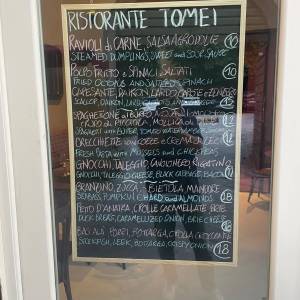 RISTORANTE TOMEI
RAVIOLI di CARNE SALSA AGRODOLCE 10
STEAMED DUMPLINGS, SWEET and SOUR SAUCE
POLPO FRITTO e SPINACI SALTATI 10
FRIED OCTOPUS AND SAUTEED SPINACH
CAPESANTE, DAIKON, LARDO
SCALLOP, DAIKON, LARD
SPAGHETTONE BURRO
MOLLICA
SPAGHETTI WITH BUTTER, TOMATO WATER
ORECCHIETTE con COZZE e CREMA di CECI 12
FRESH PASTA WITH MUSSELS and CHICKPEAS
GNOCCHI, TALEGGIO, CAVOLO NERO, RIGATINO
GNOCCHI, TALEGGIO CHEESE, BLACK CABBAGE, BACON
BRANZINO, ZUCCA, BIETOLA MANDORLE
SEABASS, PUMPKIN, CHARD and ALMONDS
PETTO D'ANATRA, CIPOLLE CARAMELLATE BRIE
DUCK BREAST, CARAMELLIZED ONION, BRIE CHEESE
PORRI, BOTTARGA, CIPOLLA CROCCANTE
STOCKFISH, LEEK, BOTTARGA, CRISPY ONION 18